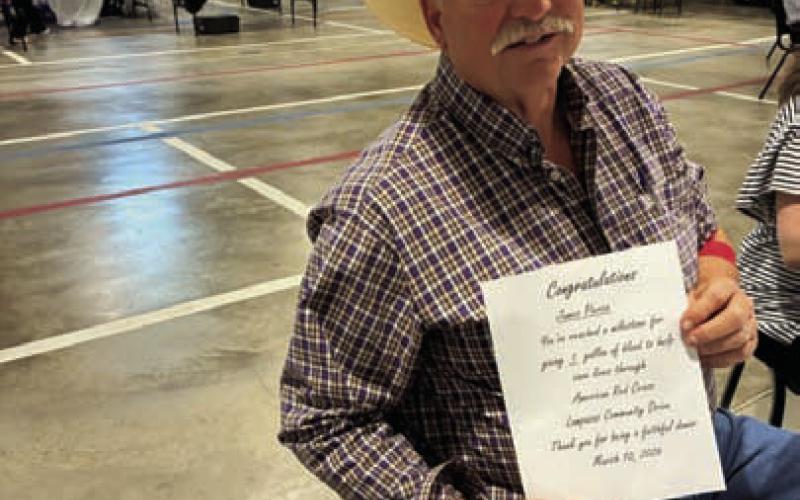 Congratulations
James
You've reached a milestone for
giving 5 gallon of blood to help
save lives through
American Red Cross
Lampasas Community Drive
Thank you for being a faithful donor
March 10,